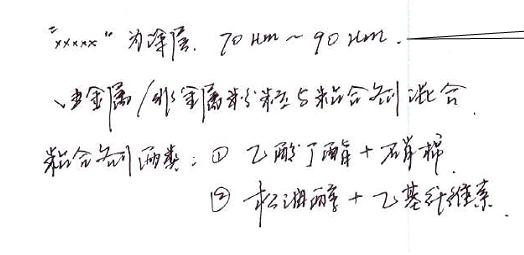 "xxxxx" 为涂层. 70 μm ~ 90 μm.
、由金属/非金属粉粒与粘合剂混合.
粘合剂两类: ① 乙酸丁酯 + 硝棉.
② 松油醇 + 乙基纤维素.